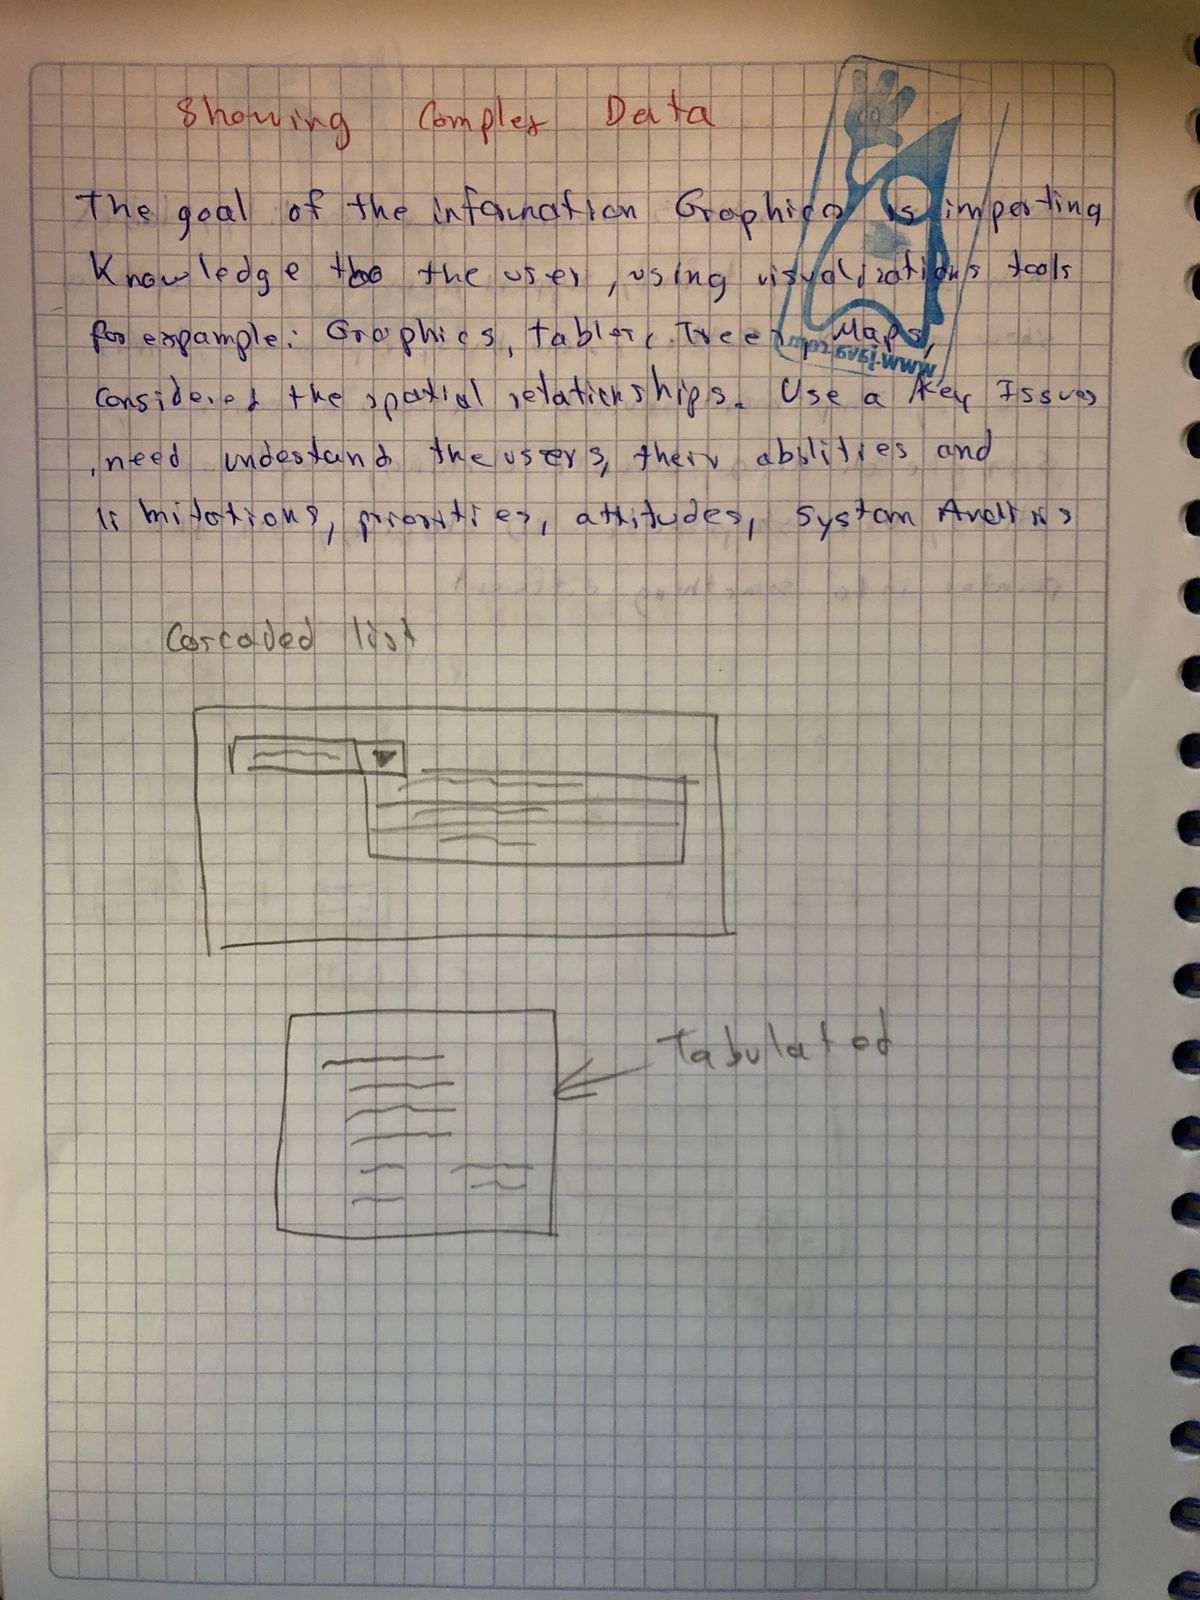 Showing Complex Data
The goal of the information Graphics is imparting
Knowledge to the user, using visualizations tools
for example: Graphics, tables, Trees, Maps,
Considered the spatial relationships. Use a Key Issues
, need undestand the users, their abilities and
limitations, priorities, attitudes, system Analisis
www.java.com
Cascaded list
Tabulated